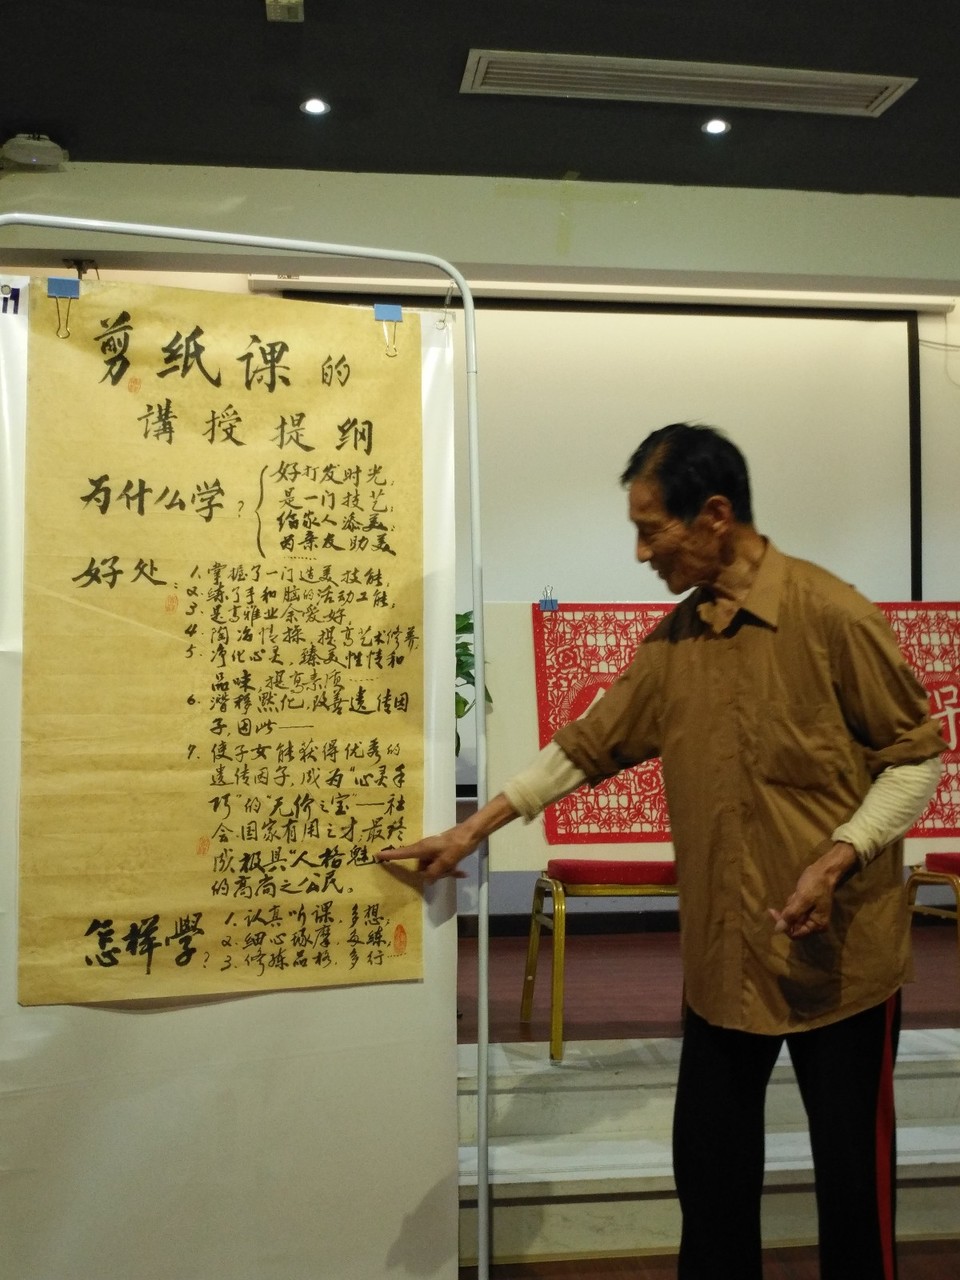 剪纸课的
講授提纲
为什么学?
好打发时光;
是一门技艺;
给家人添美;
为亲友助美
……
好处:
1.掌握了一门造美技能,
2.练了手和脑的活动工能,
3.是高雅业余爱好,
4.陶冶情操,提高艺术修养,
5.净化心灵,臻美性情和
品味,提高素质……
6.潜移默化,改善遗传因
子,因此——
7.使子女能获得优秀的
遗传因子,成为“心灵手
巧”的“无价之宝”——社
会国家有用之才,最终
成极具“人格魅
的高尚之公民。
怎样學?
1.认真听课,多想;
2.细心琢摩,多练,
3.修拣品格,多行……